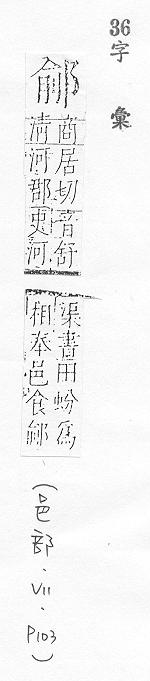 36
字彙
鄃
商居切音舒
清河郡史河
渠書田蚡爲
相奉邑食鄃
(邑部.VII.P103)